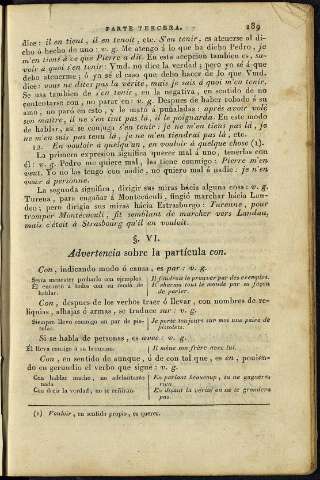 PARTE TERCERA. 189
dice: il en tient, il en tenoit, etc. S'en tenir, es atenerse al di-
cho ó hecho de uno: v. g. Me atengo á lo que ha dicho Pedro, je
m'en tiens à ce que Pierre a dit. En esta acepcion tambien es, sa-
voir à quoi s'en tenir: Vmd. no dice la verdad; pero yo sé á que
debo atenerme; ó ya sé el caso que debo hacer de lo que Vmd.
dice: vous ne dites pas la vérité, mais je sais à quoi m'en tenir.
Se usa tambien de s'en tenir, en la negativa, en sentido de no
contentarse con, no parar en: v. g. Despues de haber robado á su
amo, no paró en esto, y le mató á puñaladas: après avoir volé
son maître, il ne s'en tint pas là, il le poignarda. En este modo
de hablar, así se conjuga s'en tenir: je ne m'en tiens pas là, je
ne m'en suis pas tenu là, je ne m'en tiendrai pas là, etc.
12. En vouloir à quelqu'un, en vouloir à quelque chose (1).
La primera expresion significa querer mal á uno, tenerlas con
él: v. g. Pedro me quiere mal, las tiene conmigo: Pierre m'en
veut. Yo no las tengo con nadie, no quiero mal á nadie: je n'en
veux à personne.
La segunda significa, dirigir sus miras hácia alguna cosa: v. g.
Turena, para engañar á Montecúculi, fingió marchar hácia Lan-
deu; pero dirigia sus miras hácia Estrasburgo: Turenne, pour
tromper Montécuculi, fit semblant de marcher vers Landau,
mais c'étoit à Strasbourg qu'il en vouloit.
§. VI.
Advertencia sobre la partícula con.
Con, indicando modo ó causa, es par: v. g.
Sería menester probarlo con ejemplos. Il faudroit le prouver par des exemples.
Él encanta á todos con su modo de hablar. Il charme tout le monde par sa façon de parler.
Con, despues de los verbos traer ó llevar, con nombres de re-
liquias, alhajas ó armas, se traduce sur: v. g.
Siempre llevo conmigo un par de pis-
tolas. Je porte toujours sur moi une paire de
pistolets.
Si se habla de personas, es avec: v. g.
Él lleva consigo á su hermano. Il mène son frère avec lui.
Con, en sentido de aunque, ó de con tal que, es en, ponien-
do en gerundio el verbo que sigue: v. g.
Con hablar mucho, no adelantarás
nada. En parlant beaucoup, tu ne gagneras
rien.
Con decir la verdad, no te reñirán. En disant la vérité on ne te grondera
pas.
(1) Vouloir, en sentido propio, es querer.